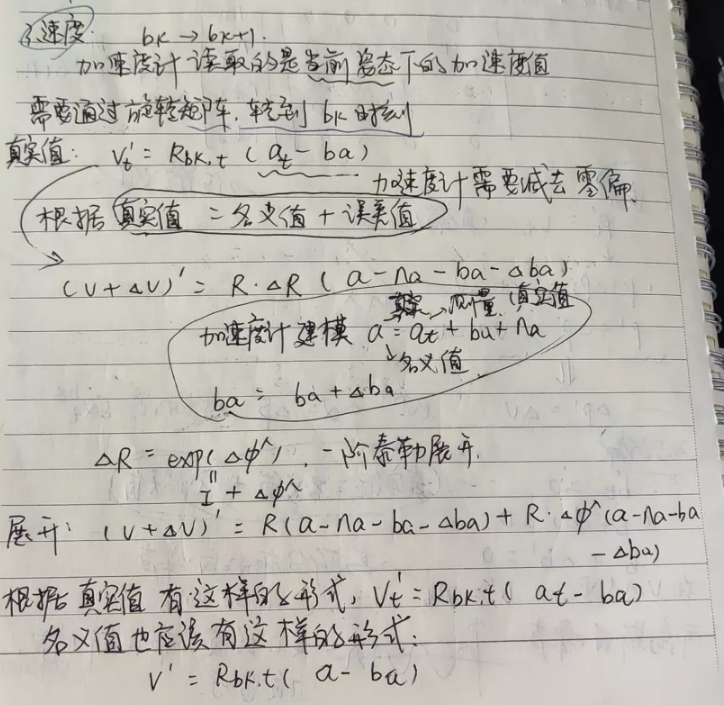 速度: bk → bk+1.
加速度计读取的是当前姿态下的加速度值
需要通过旋转矩阵,转到 bk 时刻
真实值: Vt' = Rbk,t (at - ba)
加速度计需要减去零偏.
根据 真实值 = 名义值 + 误差值
(V + ΔV)' = R·ΔR (a - na - ba - Δba)
观测量 (真实值
加速度计建模 a = at + ba + na
↓名义值
ba = ba + Δba
ΔR = exp(Δφ^), 一阶泰勒展开.
I + Δφ^
展开: (V + ΔV)' = R(a - na - ba - Δba) + R·Δφ^(a - na - ba
- Δba)
根据真实值 有这样的形式, Vt' = Rbk,t( at - ba)
名义值也应该有这样的形式:
V' = Rbk,t( a - ba)